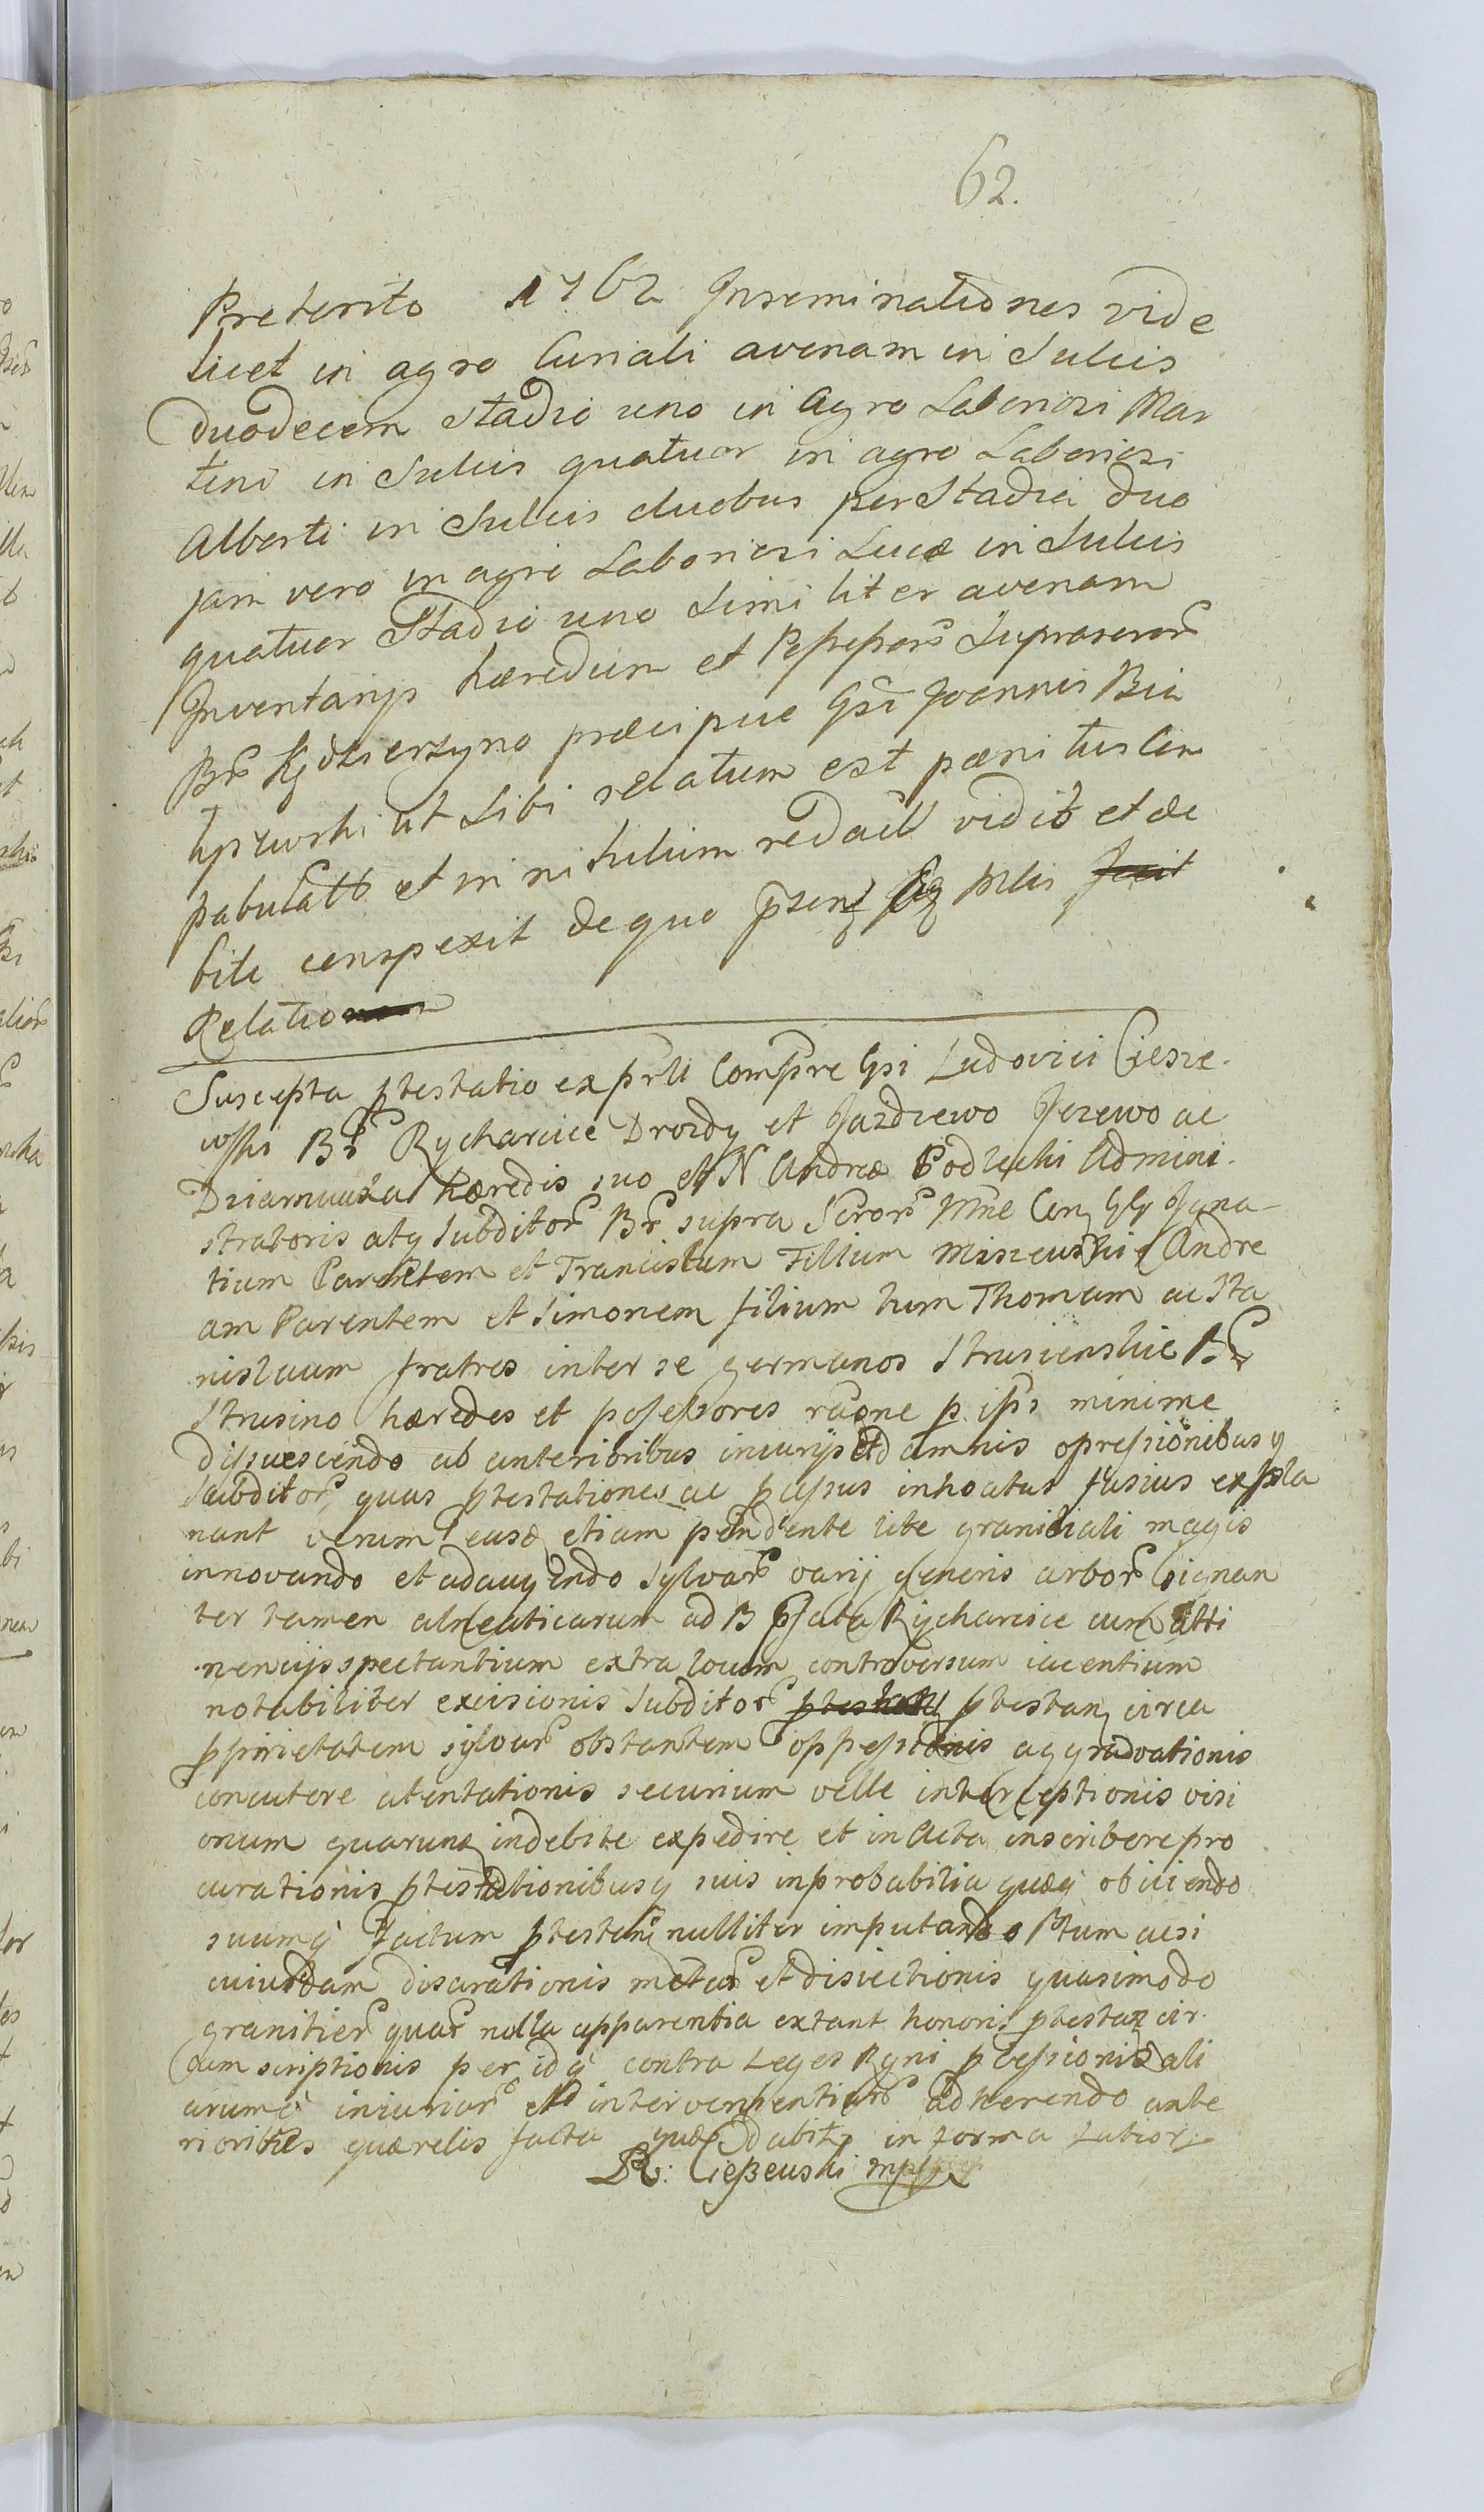 62.
Preterito 1762 Inseminationes vide
licet in agro Curiali avenam in Sulcis
duodecem Stadio uno in Agro Laboriosi Mar
tini in Sulcis quatuor in agro Laboriosi
Alberti in Sulcis duobus per Stadia duo
jam vero in agri Laboriosi Lucæ in Sulcis
quatuor Stadio uno Simi liter avenam
Inventarijs hæredum et Suprascror
Br præcipue Gsi Joannis Bia
ut Sibi relatum est pænitus Con
pabulatt et in nihilum vidit et de
bite conspexit de quo
Relatio
Suscepta ptestatio ex prli Compre Gsi Ludovici Ciesze-
wski Br Rycharcice Drozdy et Jazdzewo Jezewo ac
hæredis suo et N Andreæ Podleski Admini-
stratoris atq Subditor Br supra Scror Mne Con Gg Igna-
tium Parentem et Franciscum Filium Miszewskie Andre
am Parentem et Simonem filium tum Thomam ac Sta
nislaum fratres inter se germanos Strusienskie Br
Strusino hæredes et possessores raone p ipsi minime
dissuescendo ab anterioribus iniurijs et damnis opressionibusq
Subditor, quas ptestationes ac pcessus inhoatus fusius expla
nant verum easq etiam pendente lite graniciali magis
innovando et adaugendo Sylvar varij generis arbor signan
ter tamen alneaticarum ad B pfata Rycharcice cum atti
nencijs spectantium extra locum controversum iacentium
notabiliter excisionis Subditor ptestan circa
pprietatem sylvar obstantem oppressionis aggravationis
concutere atentationis securium velle interceptionis visi
onum quarunq indebite expedire et in Acta inscribere pro
curationis ptestationibusq suis inprobabilia quæq obiiciendo
suumq factum ptestan nulliter imputando Ptum acsi
cuiusdam et disiectionis quasimodo
granitier quar nulla apparentia extant honoris ptestan cir-
cum scriptionis per idq contra Leges Rgni pcessionis ali
arumq iniuriar et intervenientiar adherendo ante
rioribus quærelis facta quæ dabit in forma latiori
R: Cieszewski mpp